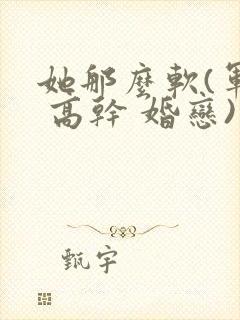 她那麼軟(軍
高幹 婚戀)
甄宇